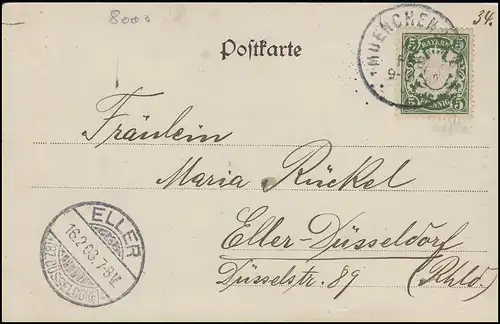 8000
34.
Postkarte
MUENCHEN
BAYERN
5 5
5 PFENNIG 5
Fräulein
Maria Rückel
Eller-Düsseldorf
Düsselstr. 89 (Rhld.)
ELLER
16.2.03. 7-8V.
(BZ. DÜSSELDORF)